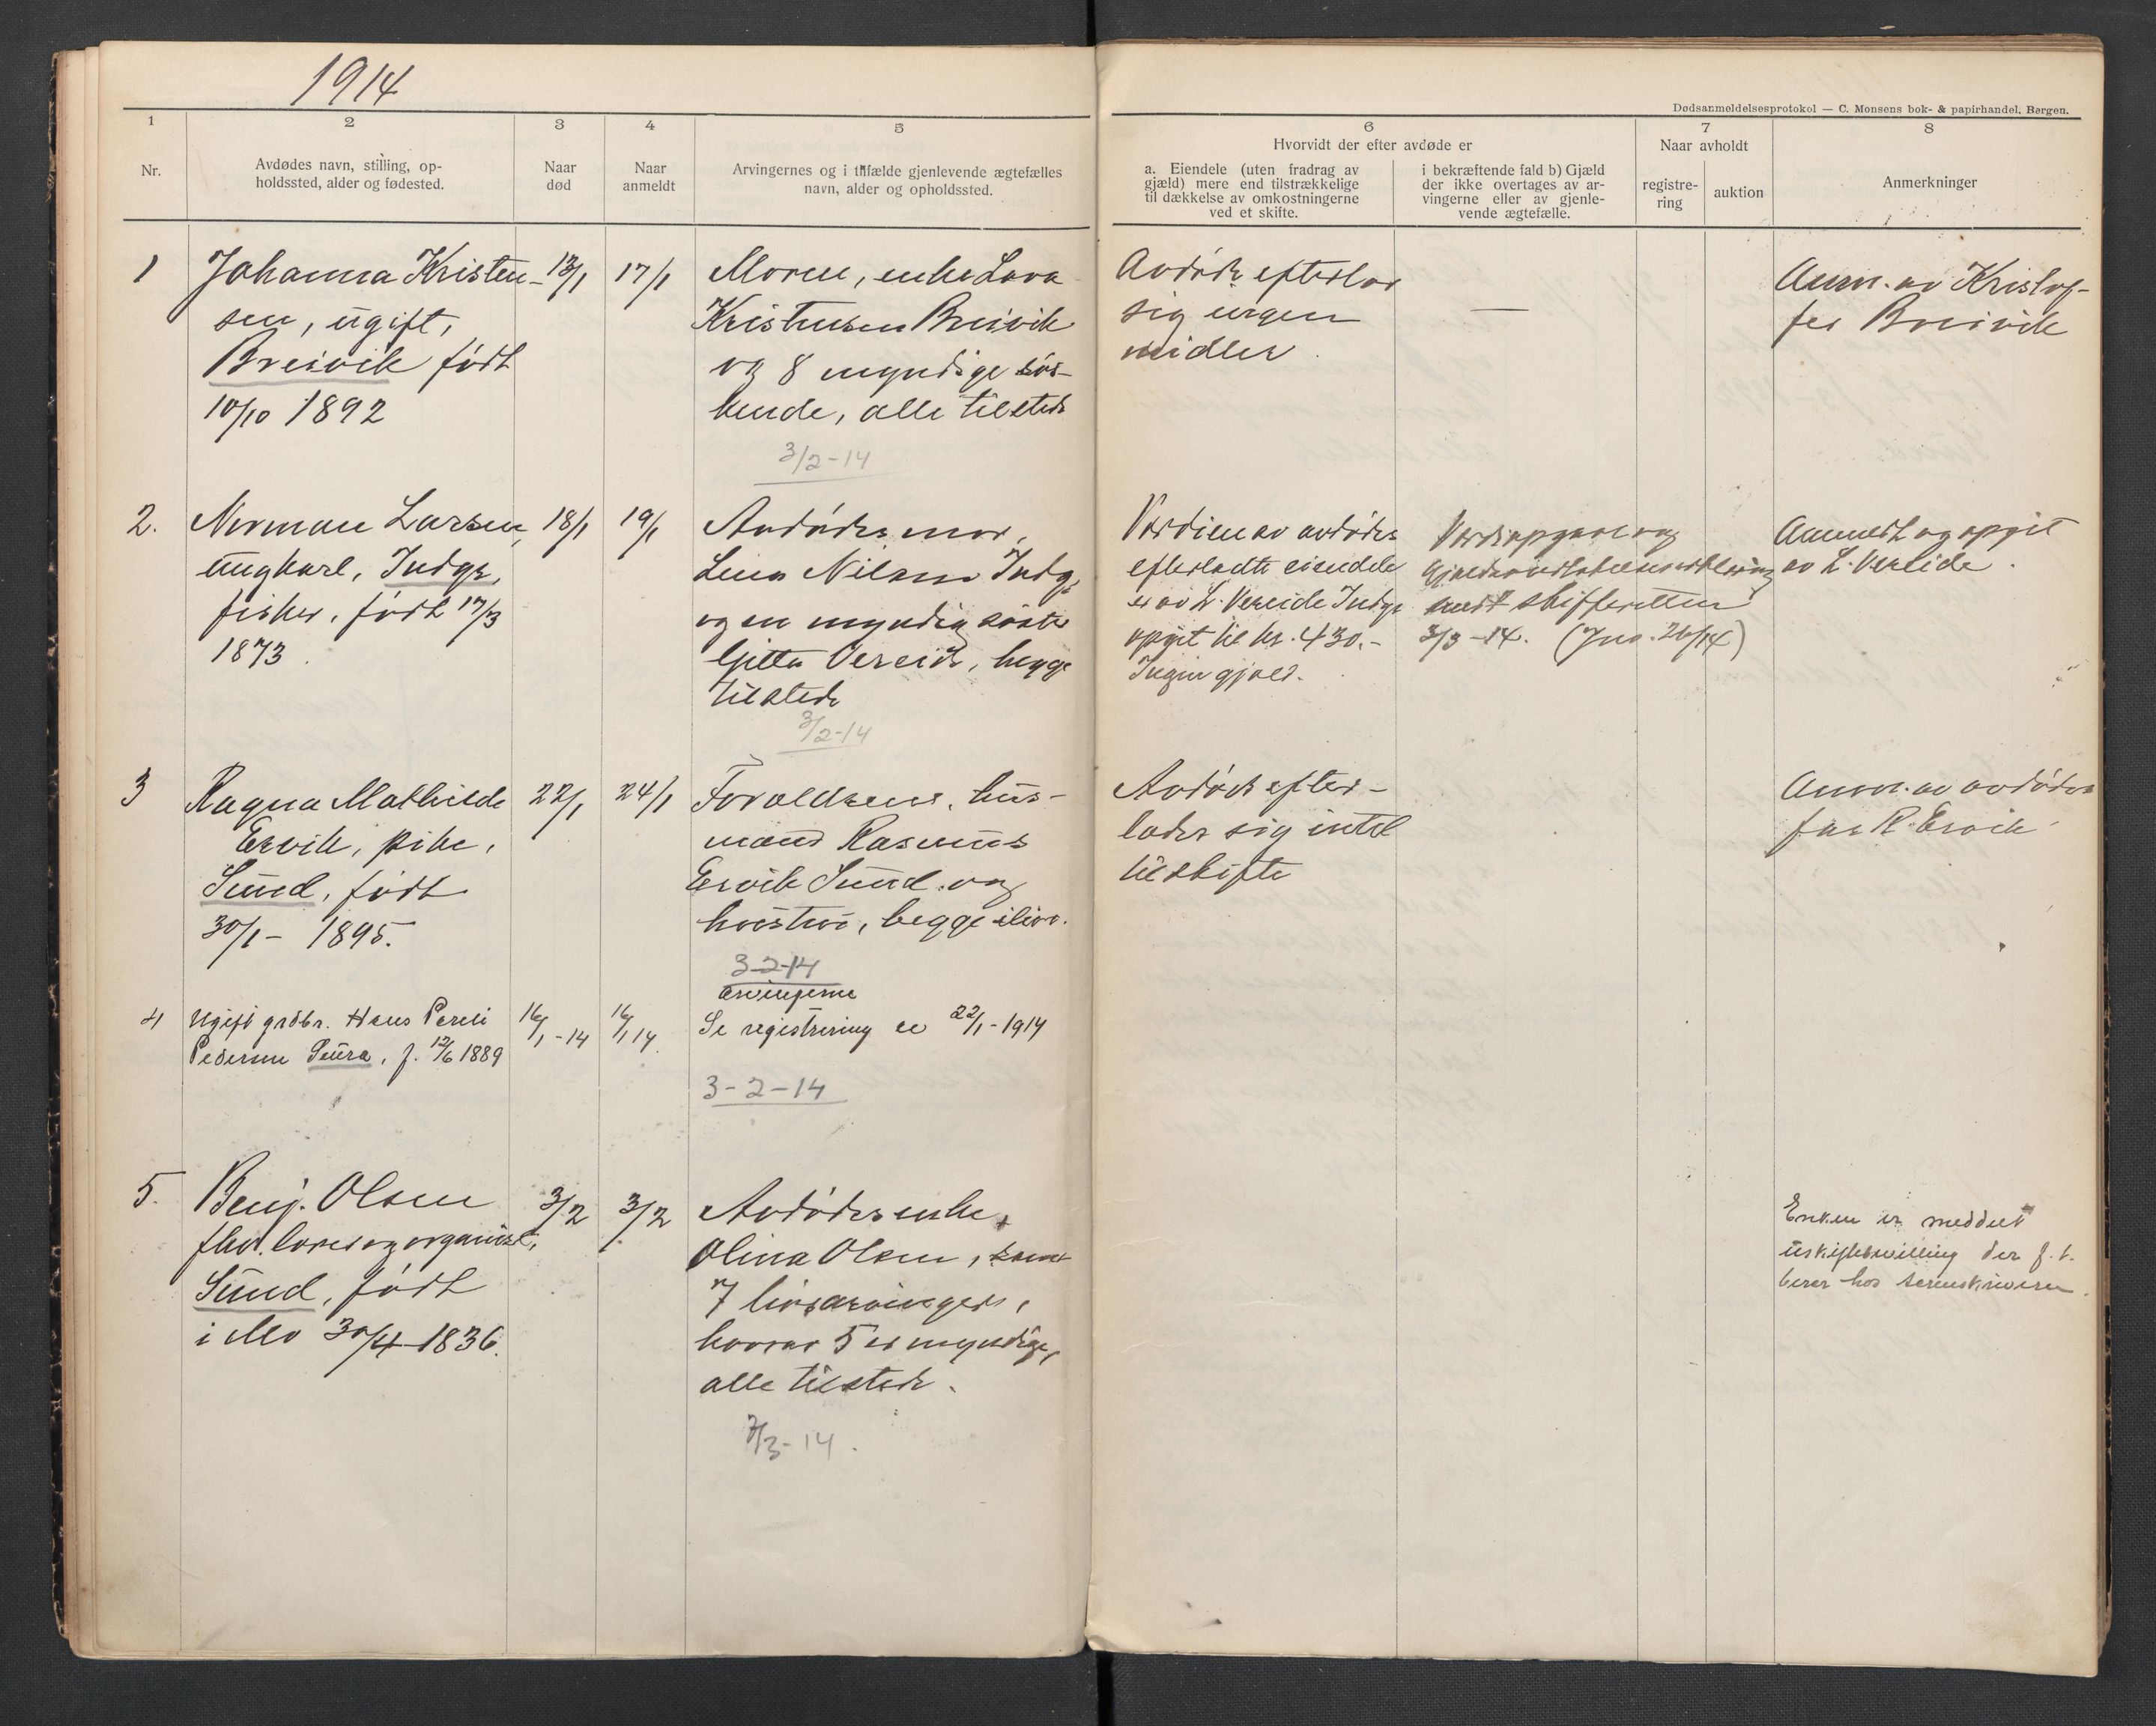 1914
Dødsanmeldelsesprotokol — C. Monsens bok- & papirhandel. Bergen.
1
2
3
4
5
6
7
8
Nr.
Avdødes navn, stilling, op-
holdssted, alder og fødested.
Naar
død
Naar
anmeldt
Arvingernes og i tilfælde gjenlevende ægtefælles
navn, alder og opholdssted.
Hvorvidt der efter avdøde er
a. Eiendele (uten fradrag av
gjæld) mere end tilstrækkelige
til dækkelse av omkostningerne
ved et skifte.
i bekræftende fald b) Gjæld
der ikke overtages av ar-
vingerne eller av gjenle-
vende ægtefælle.
Naar avholdt
registre-
ring
auktion
Anmerkninger
1
Johanna Kristen-
sen, ugift,
Breivik født
10/10 1892
13/1
17/1
Moren, enke Lava
Kristensen Breivik
og 8 myndige søs-
kende, alle tilstede
3/2-14
Avdøde efterlod
sig ingen
midler.
—
Anm. av Kristof-
fer Breivik
2.
Norman Larsen,
ungkarl, Indgr,
fisker, født 17/3
1873.
18/1
19/1
Avdødes mor,
Lina Nilsen Indg.
og en myndig søster
Gitta Vereide, begge
tilstede
3/2-14
Værdien av avdødes
efterladte eiendele
er av L. Vereide Indgr
opgit til kr. 430.-
Ingen gjæld.
Værdiopgave og
sendt skifteretten
3/3-14. (Jno. 26/14)
Anmeldt og opgit
av L. Vereide.
3
Ragna Mathilde
Ervik, pike,
Sund, født
30/1 - 1895.
22/1
24/1
Forældrene, hus-
mand Rasmus
Ervik Sund og
hustru, begge ilive.
3-2-14
Avdøde efter-
lader sig intet
til skifte
Anm. av avdødes
far R. Ervik
4
Ugift grdbr. Hans Pereli
Pedersen Seura, f. 12/6 1889
16/1-14
16/1 14.
arvingerne
Se registrering av 22/1-1914
3-2-14
5.
Benj. Olsen
fhv. lærer og organist,
Sund, født
i Mo 30/4 1836.
3/2
3/2
Avdødes enke,
Olina Olsen, samt
7 livsarvinger,
hvorav 5 er myndige,
alle tilstede.
7/3-14.
Enken er meddelt
uskiftebevilling der f. t.
beror hos sorenskriveren.